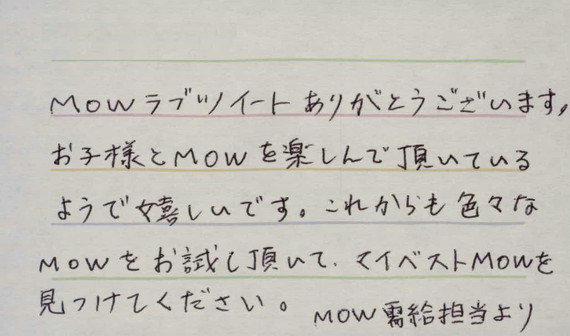 MOWラブツイートありがとうございます。
お子様とMOWを楽しんで頂いている
ようで嬉しいです。これからも色々な
MOWをお試し頂いて、マイベストMOWを
見つけてください。
MOW需給担当より